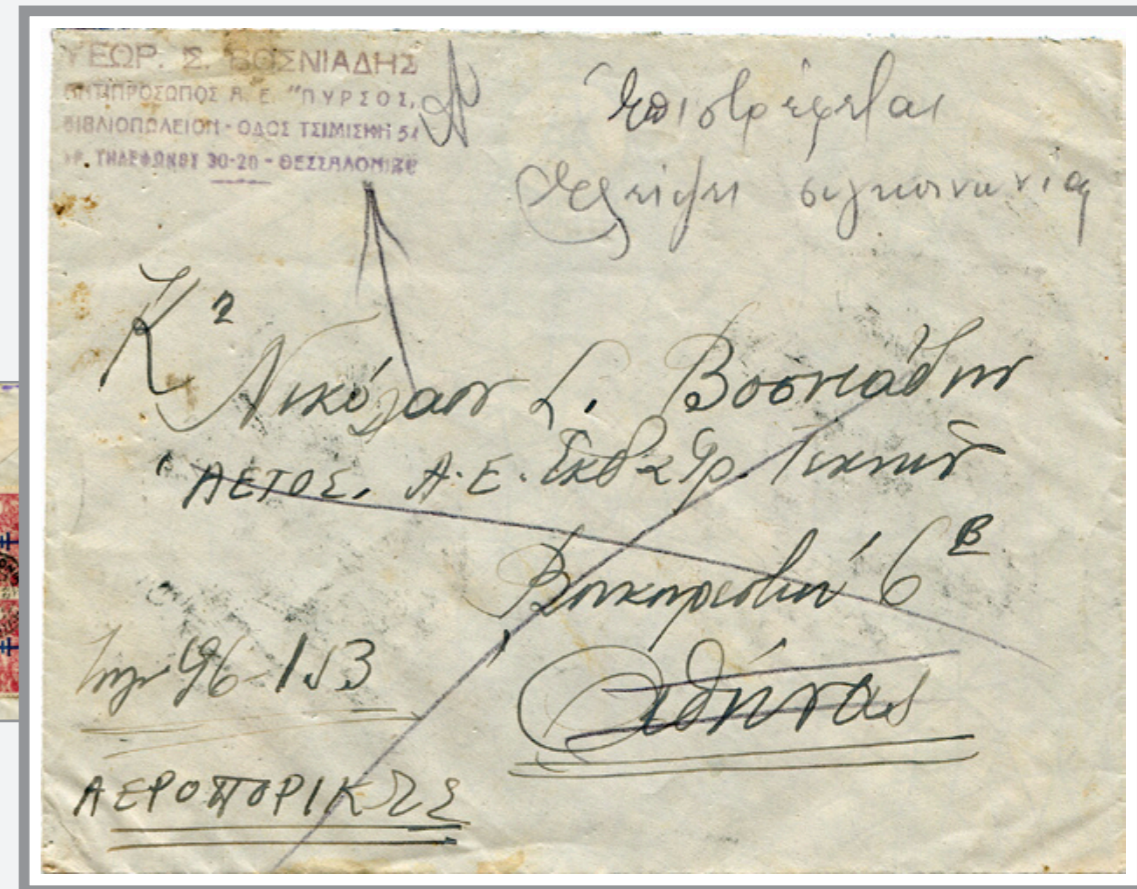 ΓΕΩΡ. Σ. ΒΟΣΝΙΑΔΗΣ
ΑΝΤΙΠΡΟΣΩΠΟΣ Α. Ε. "ΠΥΡΣΟΣ,,
ΒΙΒΛΙΟΠΩΛΕΙΟΝ - ΟΔΟΣ ΤΣΙΜΙΣΚΗ 54
ΑΡ. ΤΗΛΕΦΩΝΟΥ 30-20 - ΘΕΣΣΑΛΟΝΙΚΗ
Ἐπιστρέφεται
ἐλλείψει συγκοινωνίας
Κον
Νικόλαον Σ. Βοσνιάδην
"ΑΕΤΟΣ, Α.Ε. Ἐκδ Γρ. Τεχνῶν
Βουκουρεστίου 6 Β
Ἀθήνας
Τηλ 96-153
ΑΕΡΟΠΟΡΙΚΩΣ